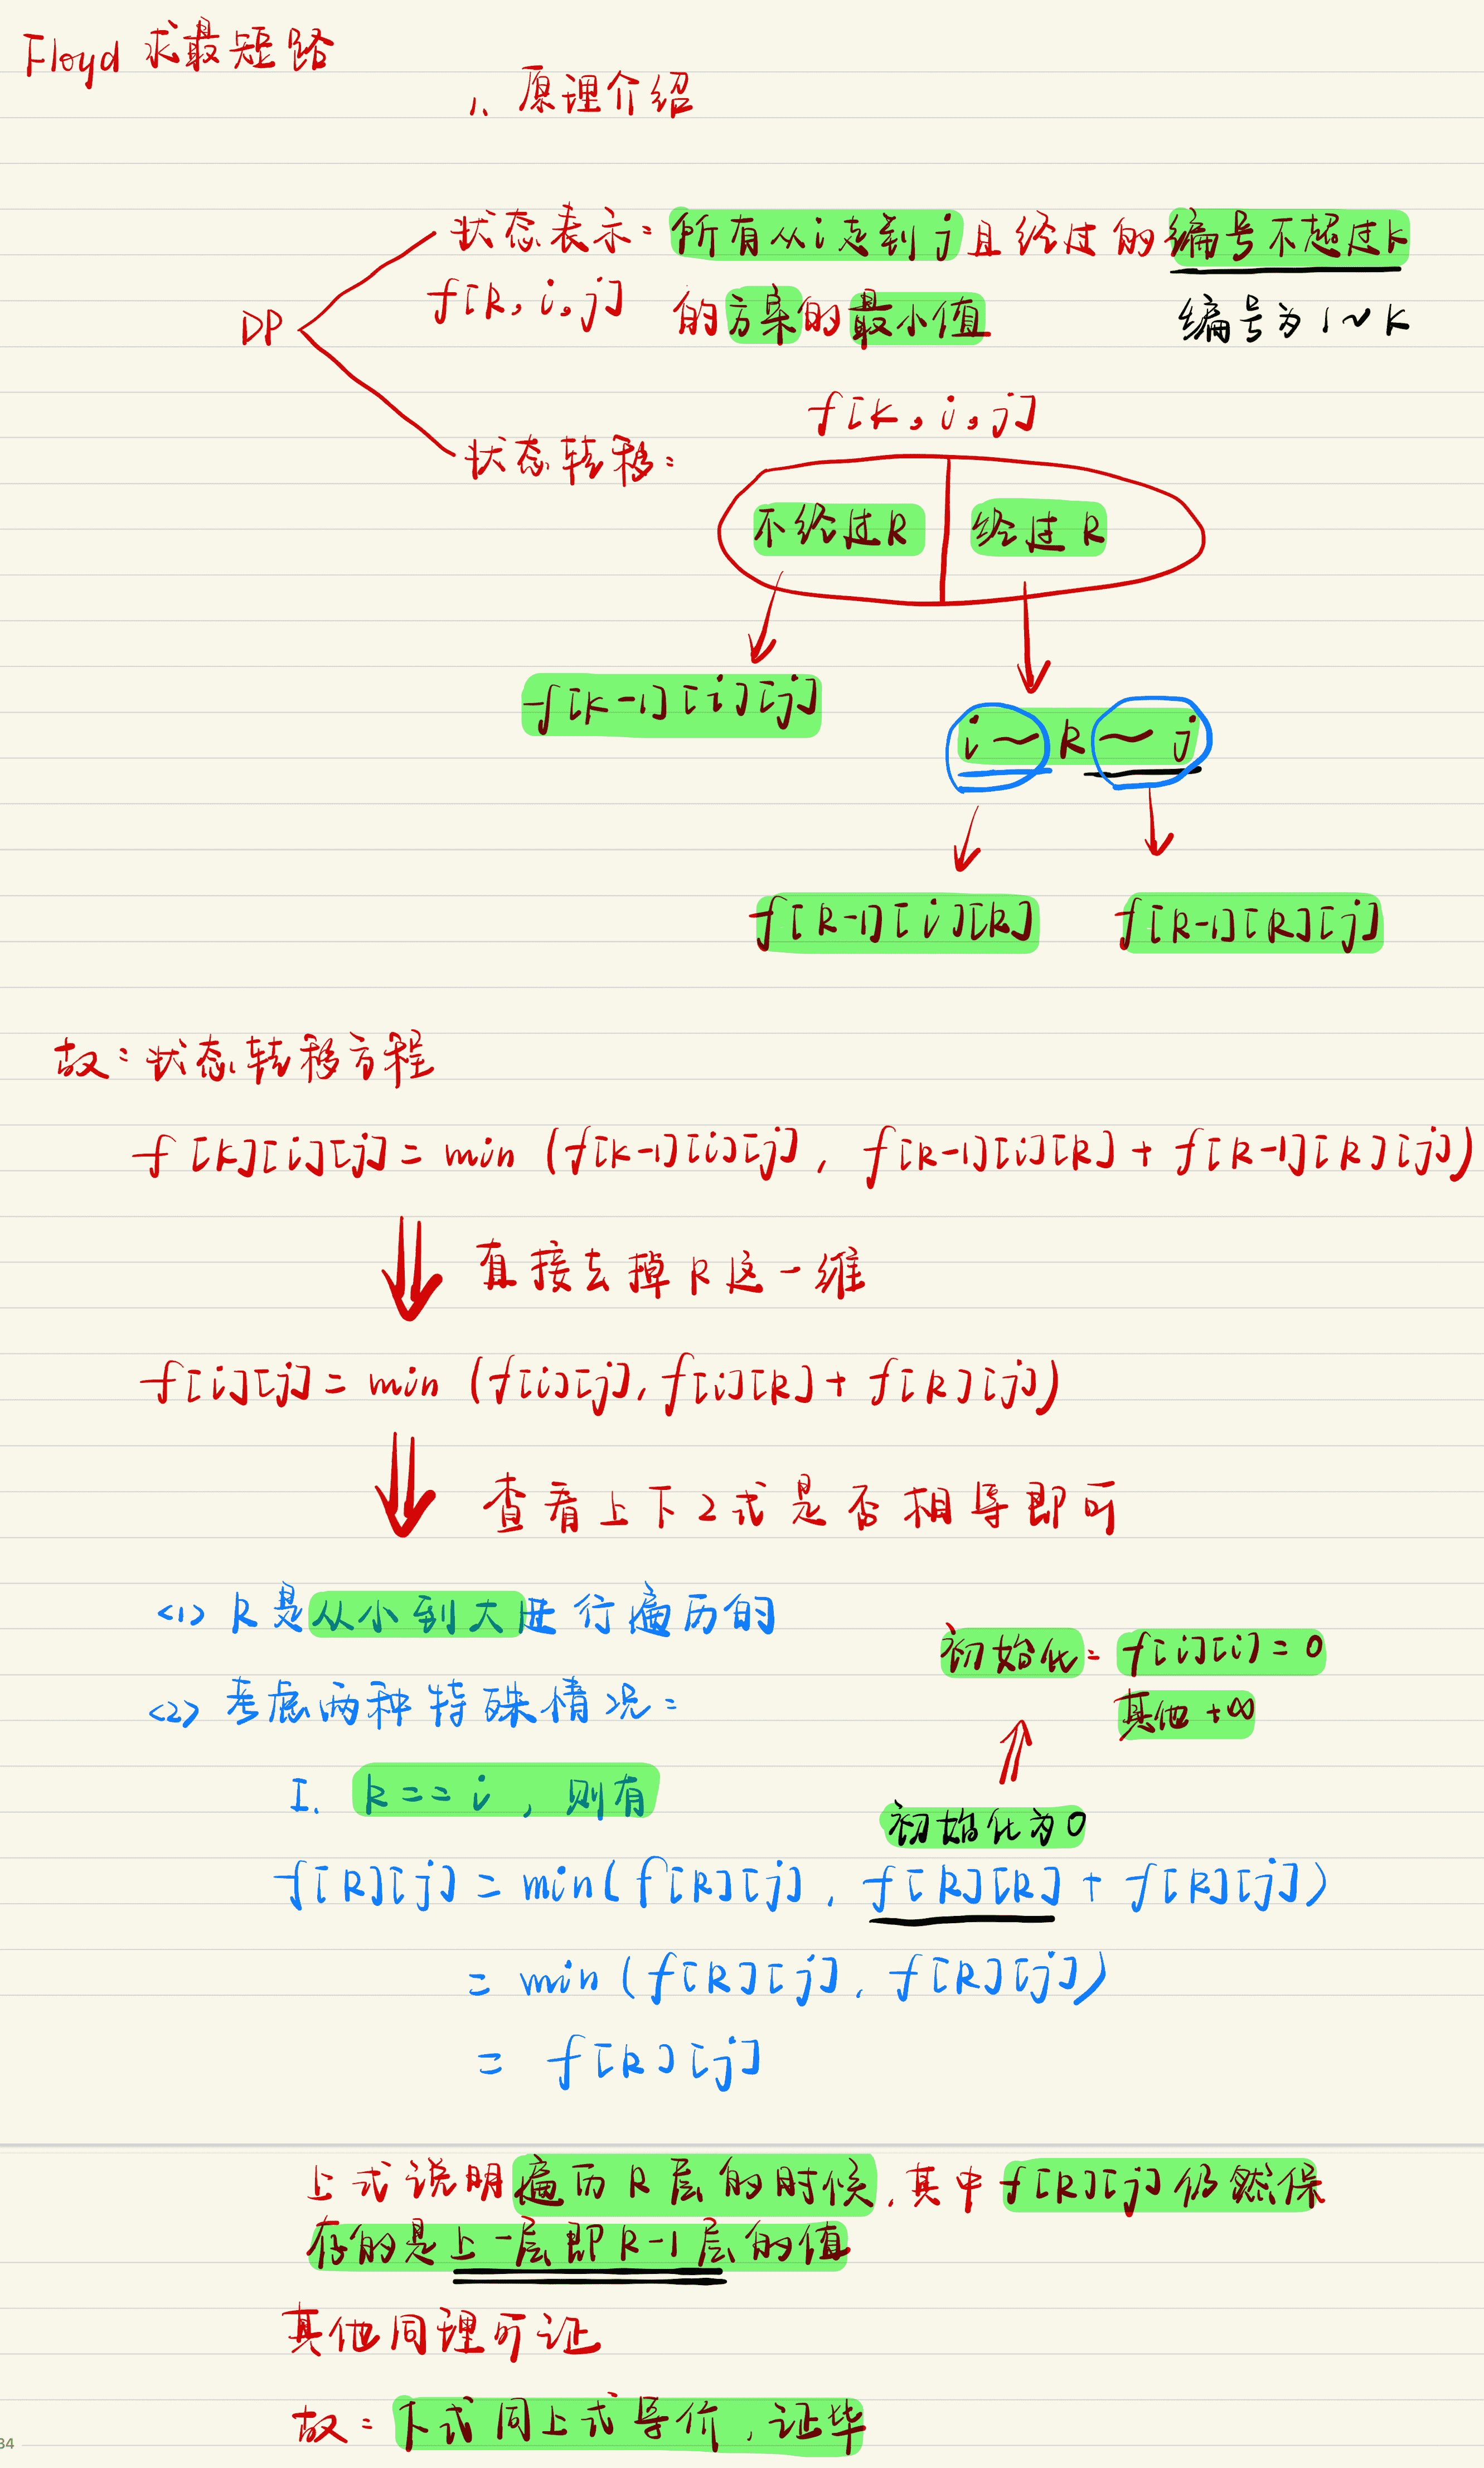 Floyd 求最短路
1、原理介绍
状态表示：所有从i走到j且经过的编号不超过k
f[k,i,j] 的方案的最小值 编号为1~k
DP
f[k,i,j]
状态转移：
不经过k 经过k
f[k-1][i][j]
i~k~j
f[k-1][i][k] f[k-1][k][j]
故：状态转移方程
f[k][i][j] = min (f[k-1][i][j], f[k-1][i][k] + f[k-1][k][j])
直接去掉k这一维
f[i][j] = min (f[i][j], f[i][k] + f[k][j])
查看上下2式是否相等即可
<1> k是从小到大进行遍历的
初始化：f[i][i] = 0
<2> 考虑两种特殊情况：
其他 +∞
I. k == i ，则有
初始化为0
f[k][j] = min(f[k][j], f[k][k] + f[k][j])
= min (f[k][j], f[k][j])
= f[k][j]
上式说明遍历k层的时候,其中f[k][j]仍然保
存的是上一层即k-1层的值
其他同理可证
故：下式同上式等价,证毕
34